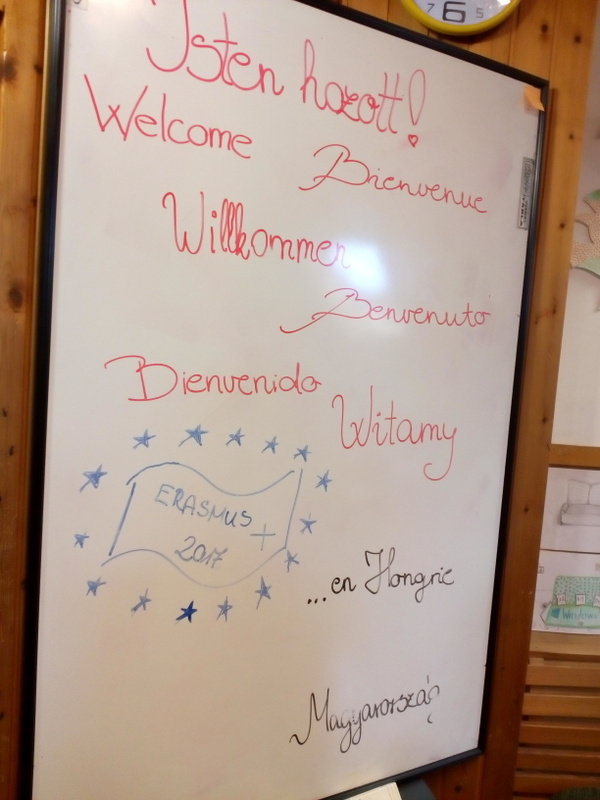 Isten hozott!
Welcome
Bienvenue
Willkommen
Benvenuto
Bienvenido
Witamy
ERASMUS +
2017
...en Hongrie
Magyarország
7 6 5